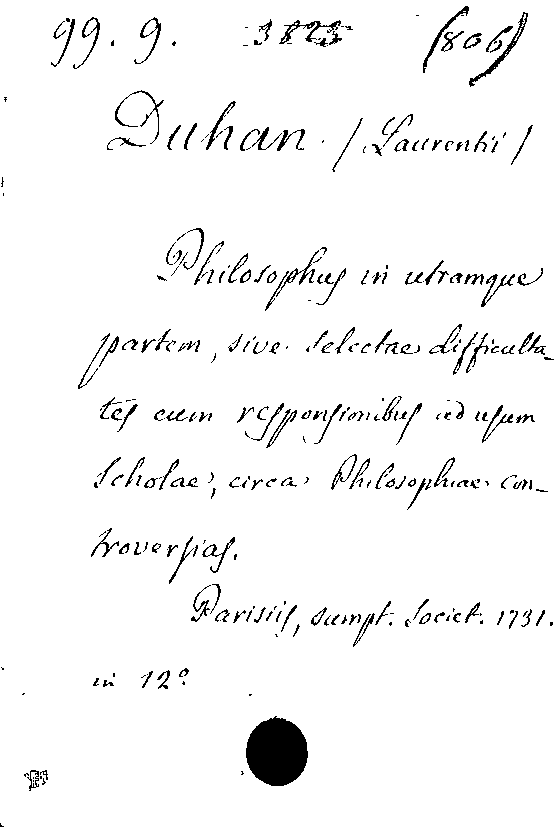 99. 9. 3823 (806)
Duhan. / Laurentii /
Philosophus in utramque
partem, sive selectae difficulta-
tes cum responsionibus ad usum
Scholae, circa Philosophiae con-
troversias.
Parisiis, sumpt. Societ. 1731.
in 12º